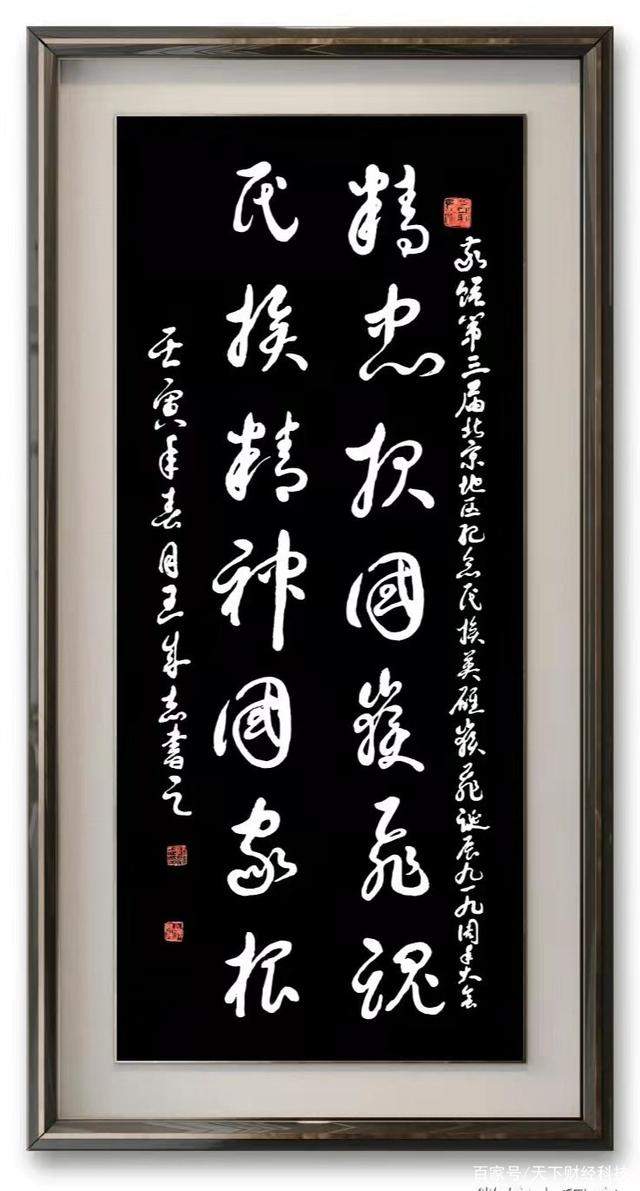 敬第三届北京地区纪念民族英雄嶽飛诞辰九一九周年大会
精忠报國嶽飛魂
民族精神國家根
壬寅年春月王成志書之
百家号/天下财经科技